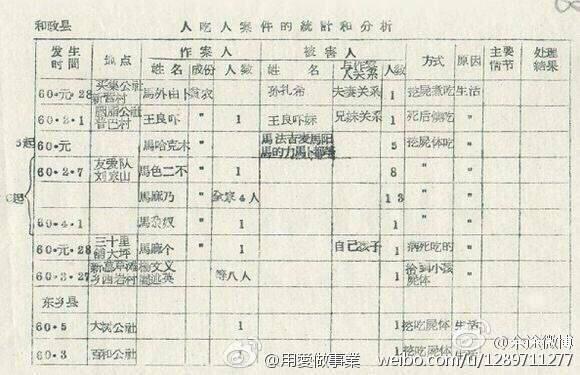 和政县 人吃人案件的統計和分析
发生时間 地点 作案人 被害人 方式 原因 主要情节 处理結果
姓名 成份 人数 姓名 与作案人关系 人数
60·元·28 买集公社新晋村 馬外由卜 貧农 孙扎希 夫妻关系 1 挖屍煮吃 生活
60·2·1 公社音巴村 王良吓 " 1 王良吓妹 兄妹关系 1 死后偷吃 "
5起 60·元 馬哈克木 " 5 挖屍体吃 "
60·2·7 友爱队刘家山 馬色二不 " 1 8 " "
馬 乃 " 全家4人 13 " "
60·4·1 馬 奴 " 1 1 " "
60·元·28 三十里鋪大坪 馬 个 " 1 自己孩子 1 病死吃的 "
60·3·27 文义 英 等八人 1 拾到小孩屍体 "
东乡县
60·5 大 公社 1 1 挖吃屍体 生活
60·3 百和公社 1 1 挖吃屍体 生活
@余途微博
@用愛做事業 weibo.com/u/1289711277